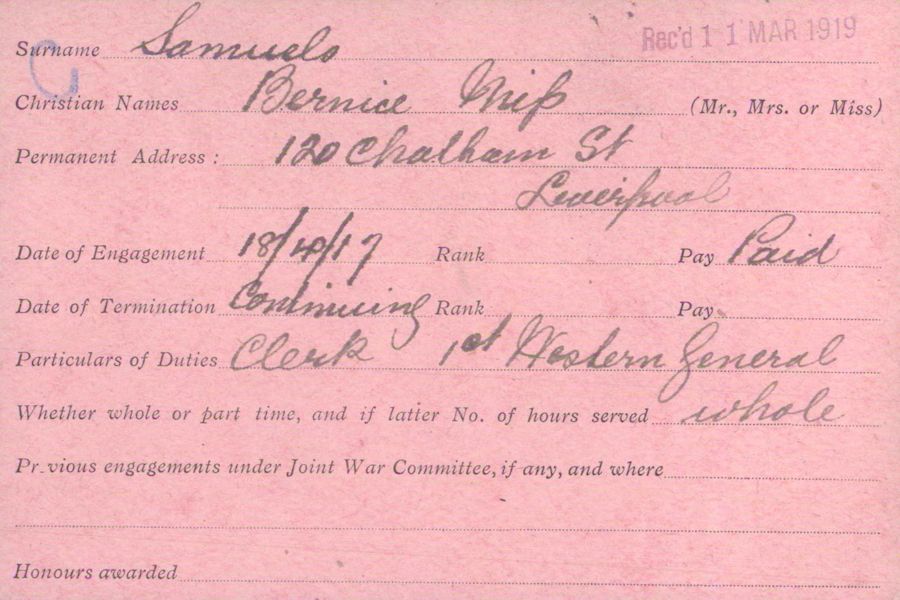 Rec'd 11 MAR 1919
Surname Samuels
G
Christian Names Bernice Miss (Mr., Mrs. or Miss)
Permanent Address: 120 Chatham St
Liverpool
Date of Engagement 18/4/17 Rank Pay Paid
Date of Termination Continuing Rank Pay
Particulars of Duties Clerk 1st Western General
Whether whole or part time, and if latter No. of hours served whole
Previous engagements under Joint War Committee, if any, and where
Honours awarded